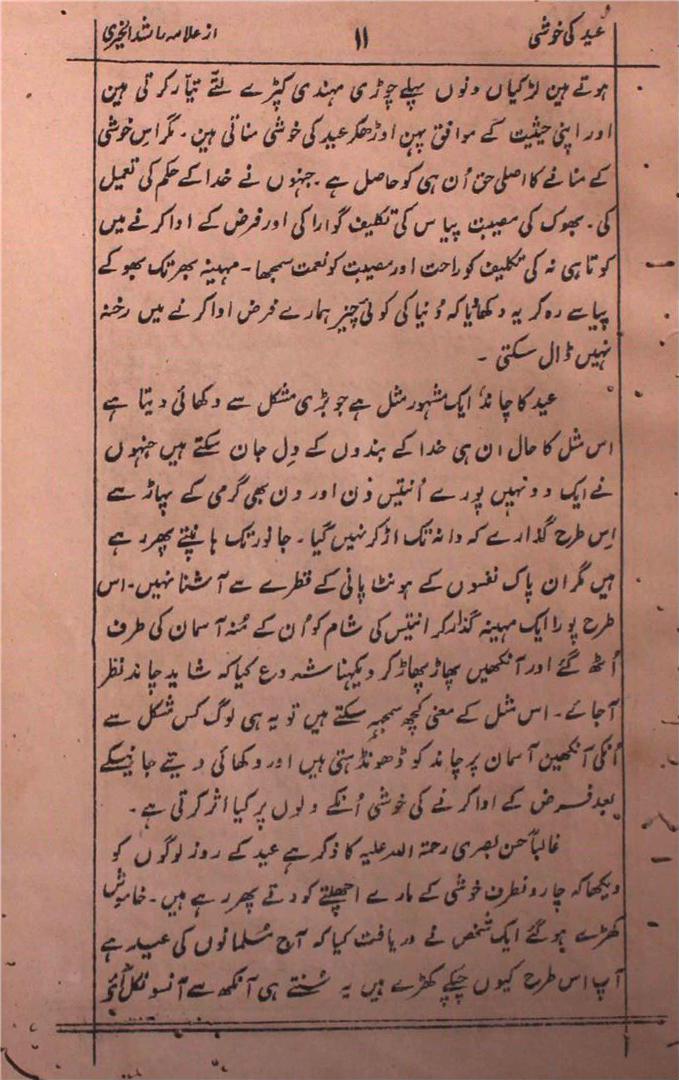 عید کی خوشی ۱۱ از علامہ راشد الخیری
ہوتے ہین لڑکیاں دنوں پہلے چوڑی مہندی کپڑے لتّے تیار کرتی ہین
اور اپنی حیثیت کے موافق پہن اوڑھکر عید کی خوشی مناتی ہین ۔ مگر اس خوشی
کے منانے کا اصلی حق اُن ہی کو حاصل ہے ۔ جنہوں نے خدا کے حکم کی تعمیل
کی ۔ بھوک کی مصیبت پیاس کی تکلیف گوارا کی اور فرض کے ادا کرنے میں
کوتاہی نہ کی تکلیف کو راحت اور مصیبت کو نعمت سمجھا ۔ مہینہ بھر تک بھوکے
پیاسے رہ کر یہ دکھا دیا کہ دُنیا کی کوئی چیز ہمارے فرض ادا کرنے میں رخنہ
نہیں ڈال سکتی ۔
عید کا چاند ایک مشہور مثل ہے جو بڑی مشکل سے دکھائی دیتا ہے
اس مثل کا حال ان ہی خدا کے بندوں کے دِل جان سکتے ہیں جنہوں
نے ایک دو نہیں پورے اُنتیس دن اور دن بھی گرمی کے پہاڑ سے
اِس طرح گذارے کہ دانہ تک اڑ کر نہیں گیا ۔ جانور تک ہانپتے پھر رہے
ہیں مگر ان پاک نفسوں کے ہونٹ پانی کے قطرے سے آشنا نہیں ۔ اس
طرح پورا ایک مہینہ گذار کر انتیس کی شام کو اُن کے مُنہ آسمان کی طرف
اُٹھ گئے اور آنکھیں پھاڑ پھاڑ کر دیکہنا شروع کیا کہ شاید چاند نظر
آجائے ۔ اس مثل کے معنی کچھ سمجہہ سکتے ہیں تو یہ ہی لوگ کس شکل سے
اُنکی آنکھین آسمان پر چاند کو ڈھونڈہتی ہیں اور دکھائی دیتے جانیکے
بعد فرض کے ادا کرنے کی خوشی اُنکے دلوں پر کیا اثر کرتی ہے ۔
غالباً حسن بصری رحمتہ اللہ علیہ کا ذکر ہے عید کے روز لوگوں کو
دیکھا کہ چارونطرف خوشی کے مارے اچھلتے کودتے پھر رہے ہیں ۔ خاموش
کھڑے ہو گئے ایک شخص نے دریافت کیا کہ آج مُسلمانوں کی عید ہے
آپ اس طرح کیوں چپکے کھڑے ہیں یہ سُنتے ہی آنکھ سے آنسو نکل